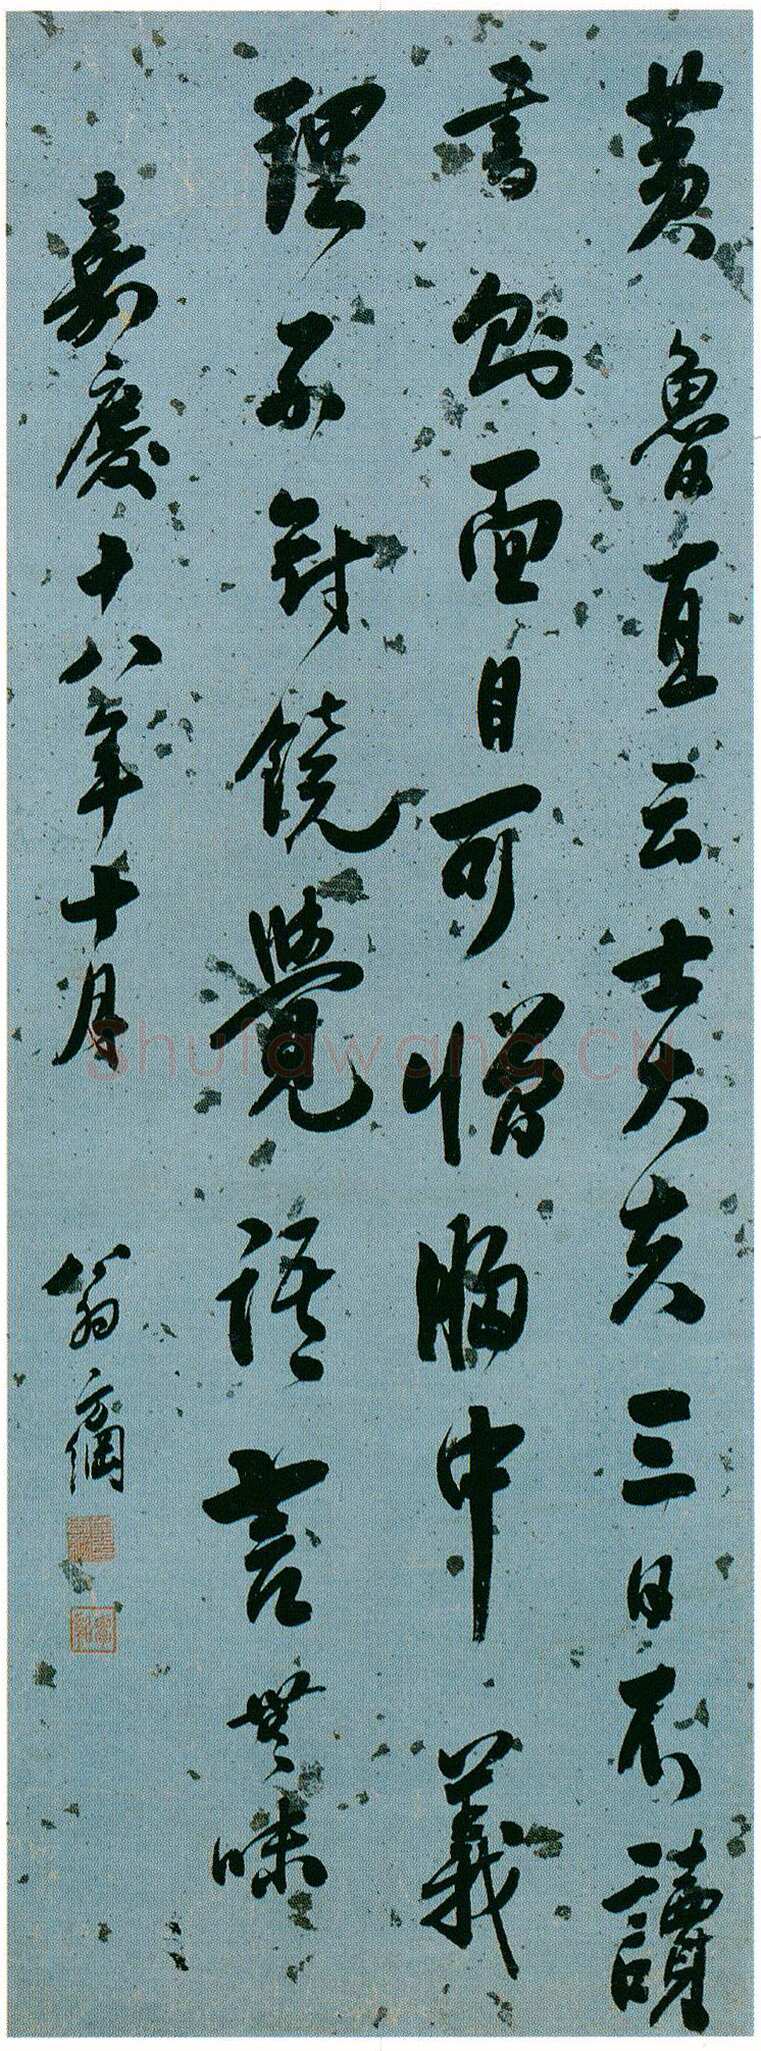 黄魯直云士大夫三日不讀
書則面目可憎胸中義
理不對鏡覺語言無味
嘉慶十八年十月 翁方綱
Shufawang.CN